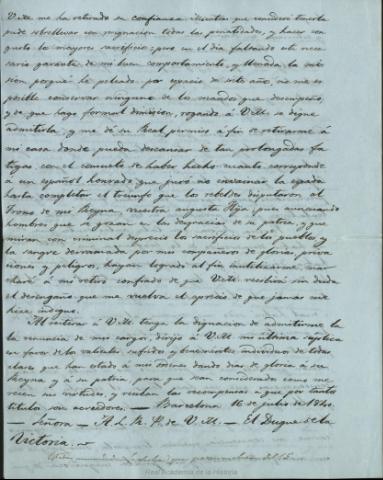 V. M. me ha retirado su confianza: mientras que considere tenerla
pude sobrellevar con resignacion todas las penalidades, y hacer con
gusto los mayores sacrificios; pero en el dia faltando este nece-
sario garante de mi buen comportamiento, y llenada la mi-
sion porqué he peleado por espacio de siete años, no me es
posible conservar ninguno de los mandos que desempeño,
y de que hago formal dimision, rogando á V. M. se digne
admitirla, y me dé su Real permiso á fin de retirarme á
mi casa donde pueda descansar de tan prolongadas fa-
tigas con el consuelo de haber hecho cuanto corresponde
á un español honrado que juró no envainar la espada
hasta completar el triunfo que los rebeldes disputaron al
Trono de mi Reyna, vuestra augusta Hija, pues aunque
hombres que se gozan en las desgracias de su patria, y que
miran con criminal desprecio los sacrificios de los pueblos, y
la sangre derramada por mis compañeros de glorias, priva-
ciones y peligros, hayan logrado al fin inutilizarme, mar-
charé á mi retiro confiado de que V. M. recibirá sin duda
el desengaño que me vuelva el aprecio de que jamas me
hice indigno.
Al reiterar á V. M. tenga la dignacion de admitirme la
la renuncia de mis cargos, dirijo á V. M. mi última súplica
en favor de los valientes, sufridos y benemeritos individuos de todas
clases que han estado á mis ordenes dando dias de gloria á su
Reyna y á su patria para que sean considerados como me-
recen sus virtudes, y reciban las recompensas á que por tantos
titulos son acreedores. — Barcelona 16 de julio de 1840.
— Señora — A L. R. P. de V. M. — El Duque de la
Victoria.
Real Academia de la Historia